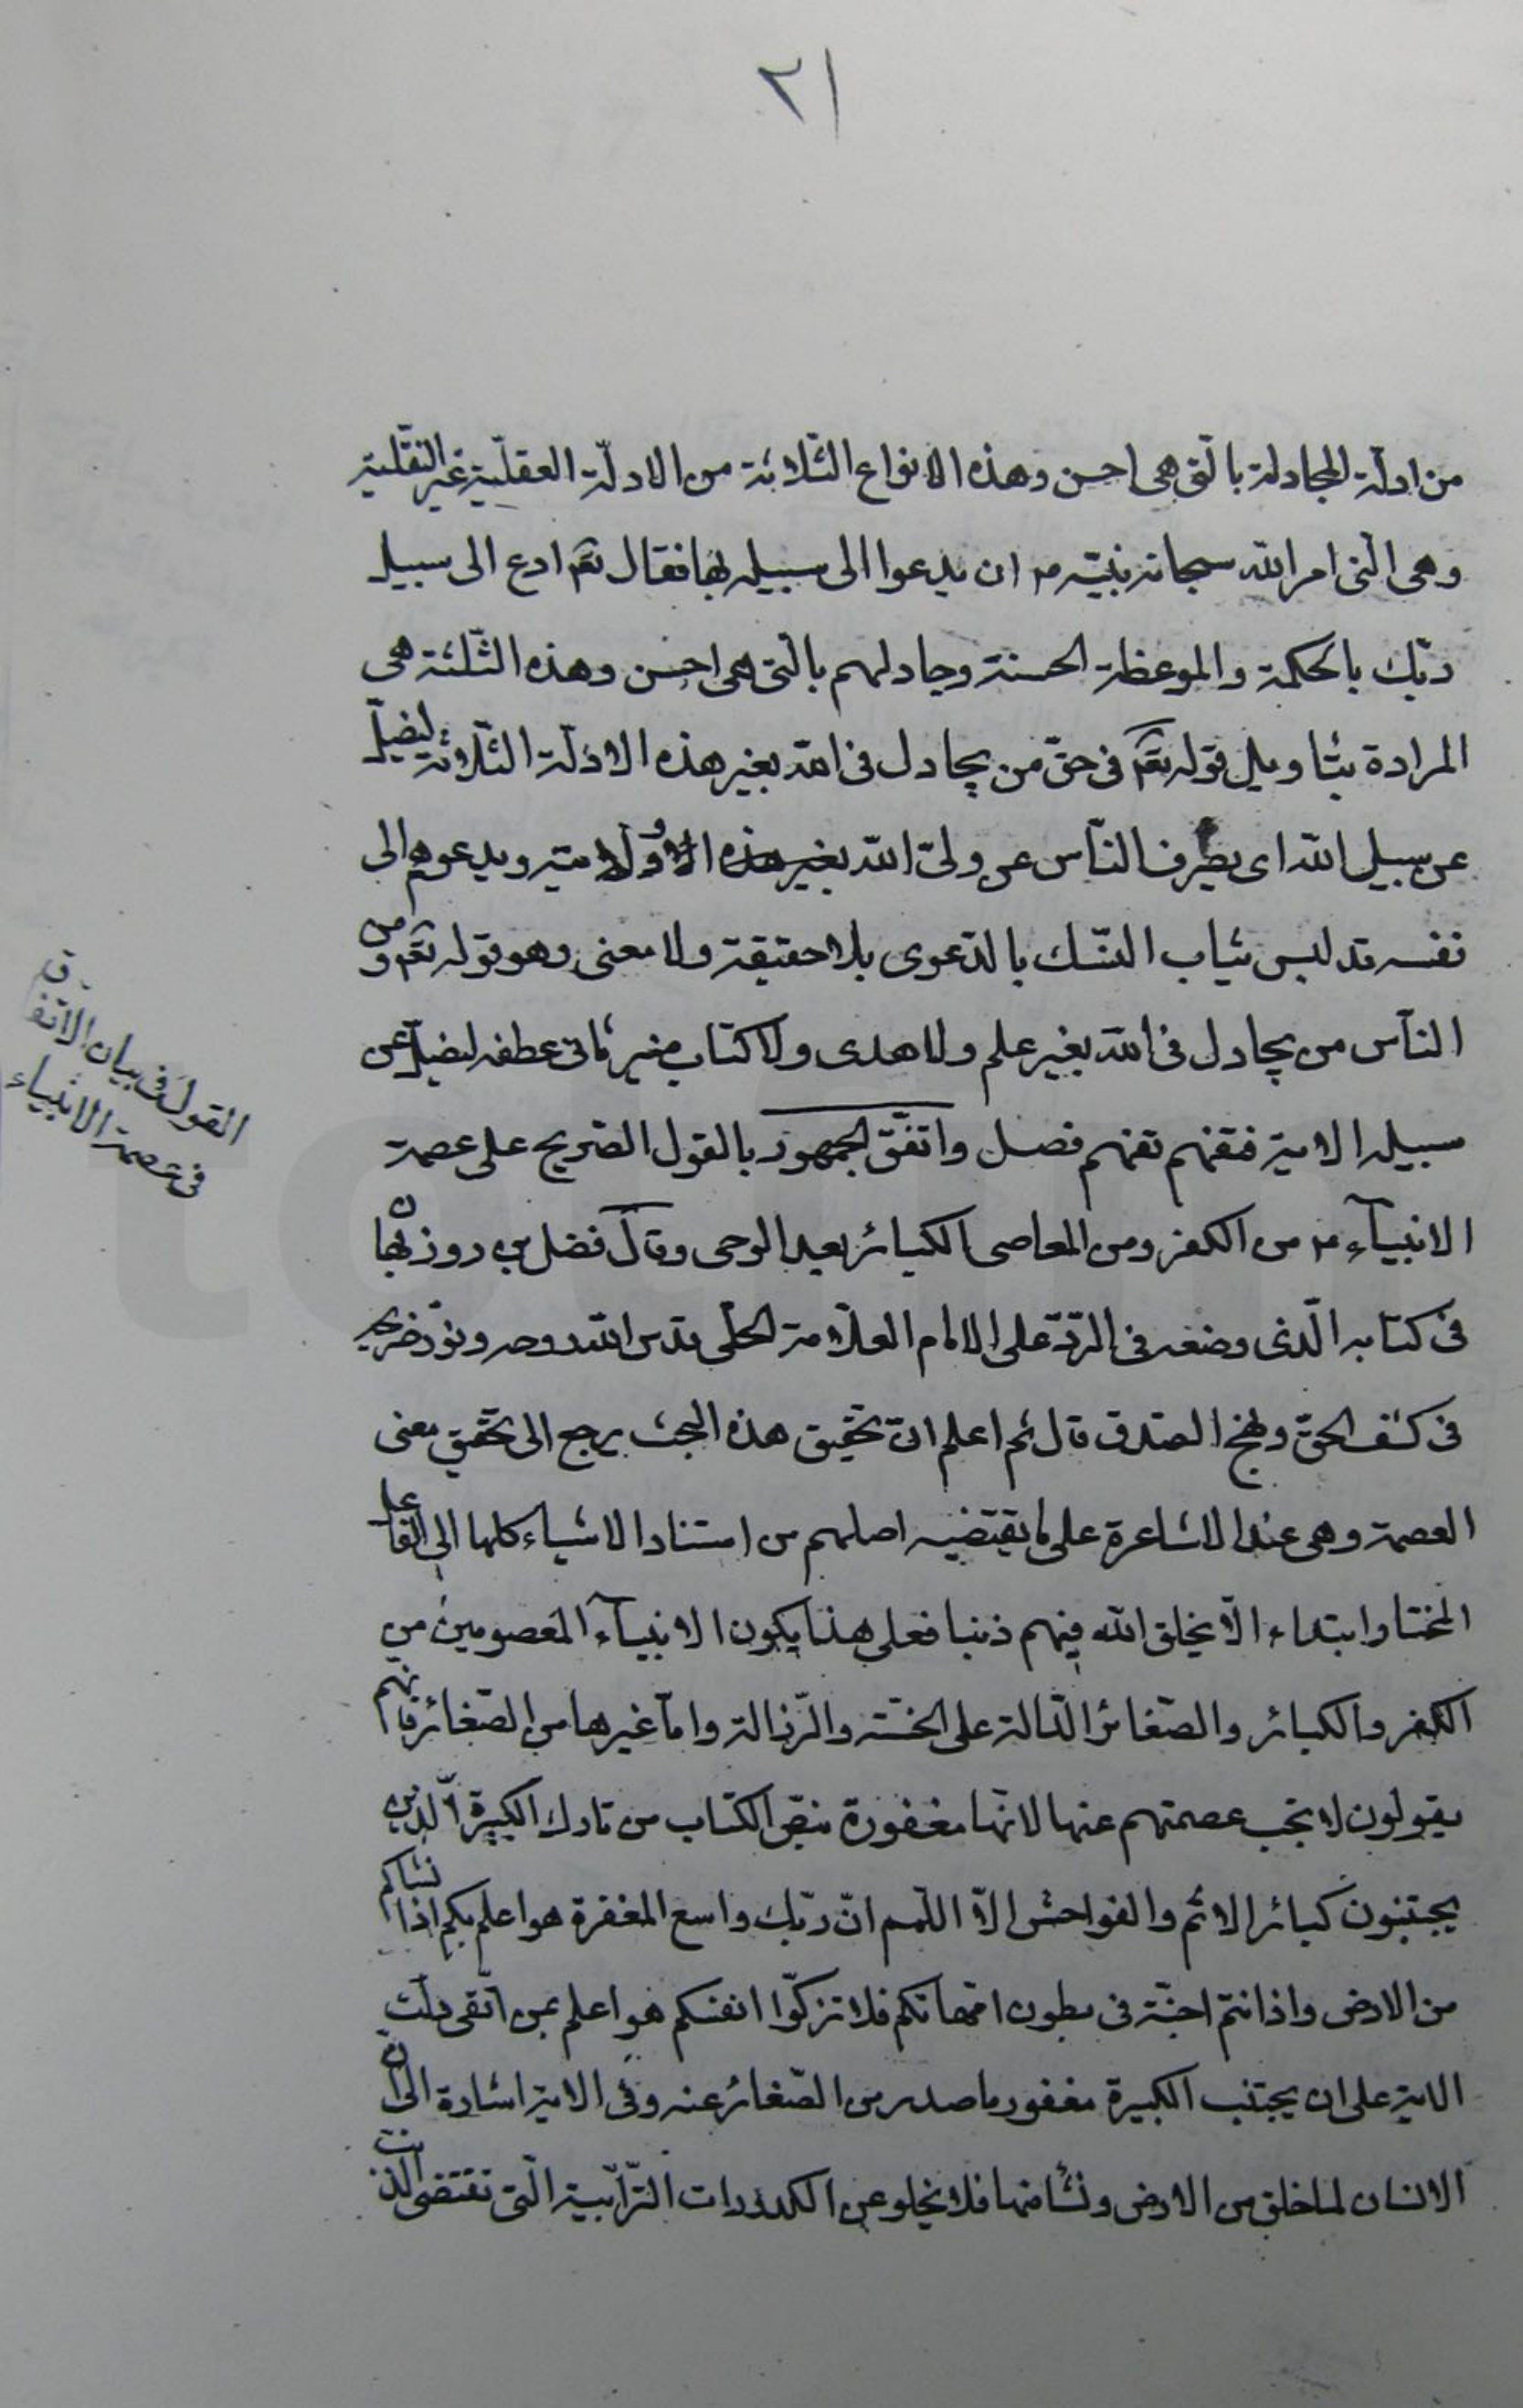 ٢١
من ادلّة المجادلة بالّتى هى احسن وهذه الانواع الثّلاثة من الادلّة العقليّة غير النقّلية
وهى الّتى امر الله سبحانه نبيّه ص ان يدعوا الى سبيله بها فقال تعم ادع الى سبيل
ربّك بالحكمة والموعظة الحسنة وجادلهم بالّتى هى احسن وهذه الثّلثة هى
المرادة بتاويل قوله تعم فى حقّ من يجادل فى الله بغير هذه الادلّة الثّلاثة ليضلّ
عن سبيل الله اى يصرف النّاس عن ولىّ الله بغير هذه ولامته ويدعوهم الى
نفسه قد لبس ثياب النّسك بالدّعوى بلا حقيقة ولا معنى وهو قوله تعم ومن
النّاس من يجادل فى الله بغير علم ولا هدى ولا كتاب منير ثانى عطفه ليضلّ عن
سبيله الاية فتفهّم تفهم فصل واتفّق الجمهور بالقول الصّريح على عصمة
الانبيآء ع من الكفر ومن المعاصى الكبائر بعد الوحى وقال فضل بن روزبهان
فى كتابه الّذى وضعه فى الردّ على الامام العلّامة الحلّى قدس الله روحه ونوّر ضريحه
فى كشف الحقّ ونهج الصّدق قال ثم اعلم انّ تحقيق هذه البحث يرجع الى تحقيق معنى
العصمة وهى عند الاشاعرة على ما يقتضيه اصلهم من استناد الاشياء كلها الى الفاعل
المختار ابتداء الّا يخلق الله فيهم ذنبا فعلى هذا يكون الانبيآء المعصومين من
الكفر والكبائر والصّغائر الدّالة على الخسّة والرّذالة وامّا غيرها من الصّغائر فانهم
يقولون لا تجب عصمتهم عنها لانّها مغفورة بنصّ الكتاب من تارك الكبيرة الّذين
يجتنبون كبائر الاثم والفواحش الّا اللّمم انّ ربّك واسع المغفرة هو اعلم بكم اذ انشاكم
من الارض واذ انتم اجنّة فى بطون امّهاتكم فلا تزكّوا انفسكم هو اعلم بمن اتّقى دلّت
الاية على ان يجتنب الكبيرة مغفور ما صدر من الصّغائر عنه وفى الاية اشارة الى انّ
الانسان لما خلق من الارض ونشأ منها فلا يخلو عن الكدورات التّرابّية الّتى تقتضى الذنب
القول فى بيان الاتفاق
فى عصمة الانبياء